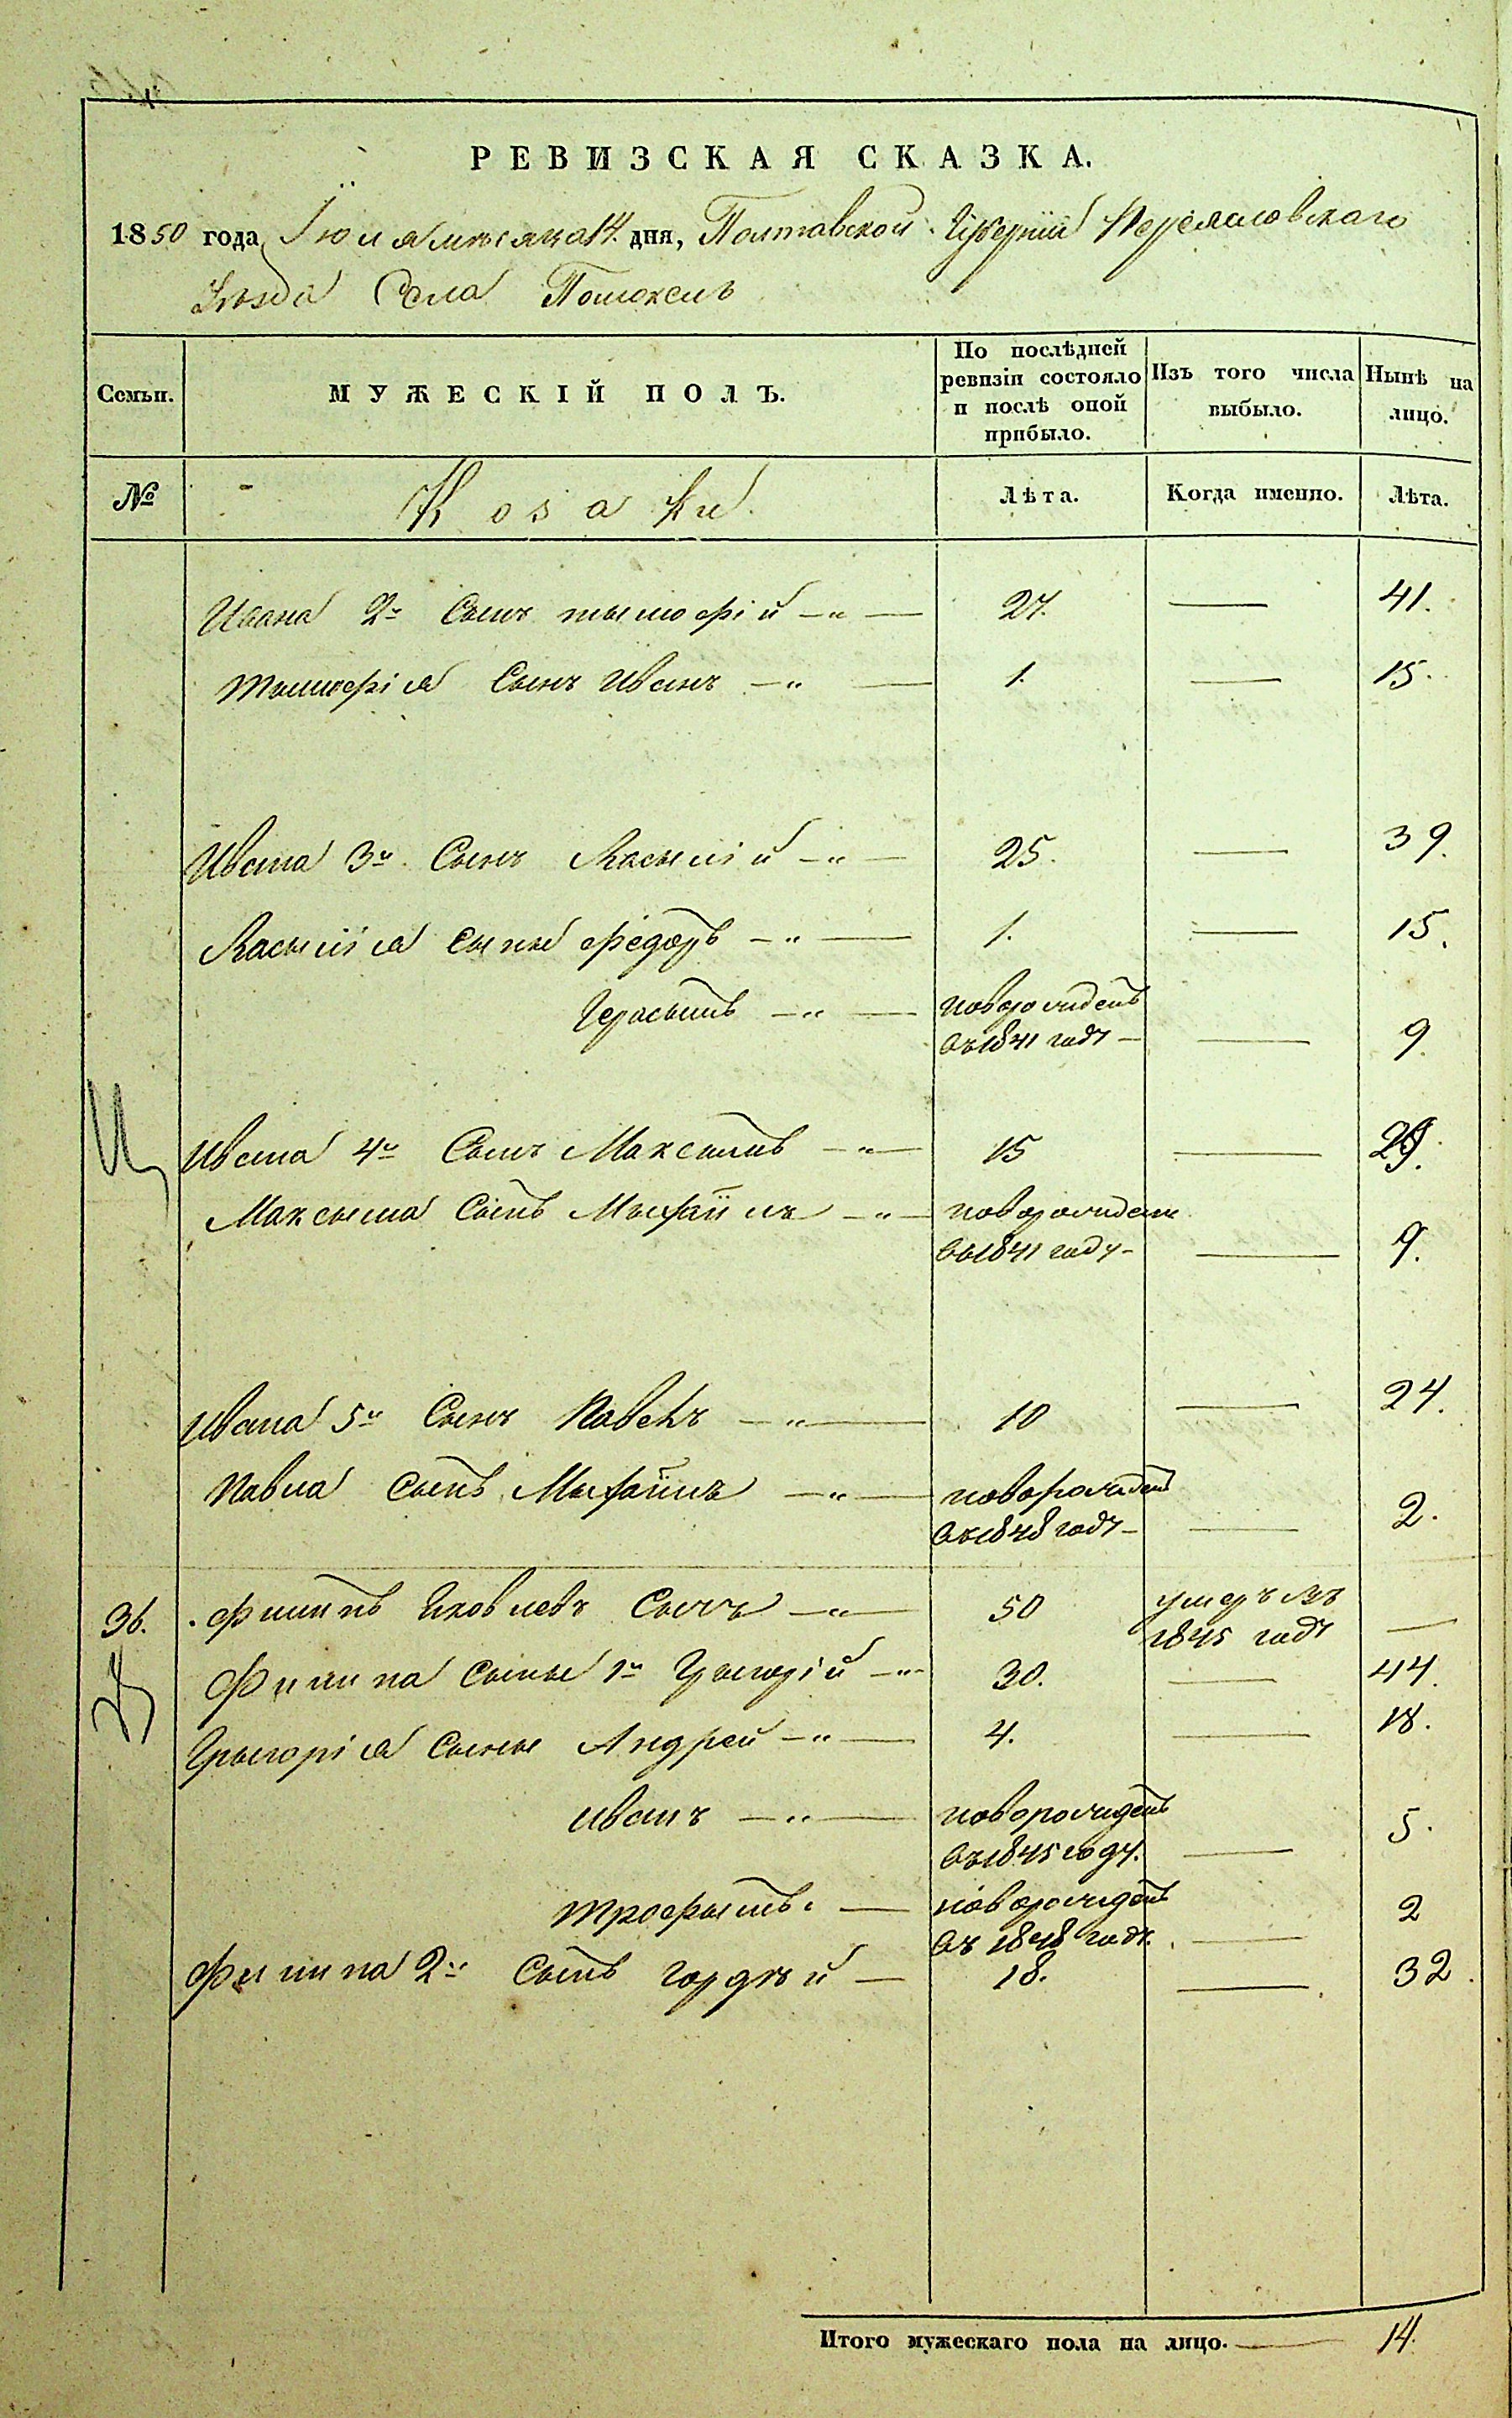 РЕВИЗСКАЯ СКАЗКА.
1850 года Іюля мѣсяца 14. дня, Полтавской Губерніи Переяславскаго
Уѣзда Села Помоклъ
Семьи.
МУЖЕСКІЙ ПОЛЪ.
По послѣдней ревизіи состояло и послѣ оной прибыло.
Изъ того числа выбыло.
Нынѣ на лицо.
№
Козаки
Лѣта.
Когда именно.
Лѣта.
Ивана 2й Сынъ тымофій —"— 27. — 41.
тымофія Сынъ Иванъ —"— 1. — 15.
Ивана 3й Сынъ Василій —"— 25. — 39.
Василія сыны федоръ —"— 1. — 15.
Герасымъ —"— новорожденъ
въ 1841 году — — 9
Ивана 4й Сынъ Максымъ —"— 15 — 29.
Максыма Сынъ Мыхаилъ —"— новорожденъ
въ 1841 году — — 9.
Ивана 5й Сынъ Павелъ —"— 10 — 24.
Павла Сынъ Мыхаилъ —"— новорожденъ
въ 1848 году — — 2.
36. Филипъ Яковлевъ Сынъ —"— 50 умеръ въ
1845 году —
Филипа сыны 1й Грыгорій —"— 30. — 44.
Грыгорія сыны Андрей —"— 4. — 18.
Иванъ —"— новорожденъ
въ 1845 году. — 5.
трофымъ. — новорожденъ
въ 1848 году. — 2
Филипа 2й Сынъ гордѣй — 18. — 32.
Итого мужескаго пола на лицо. — 14.